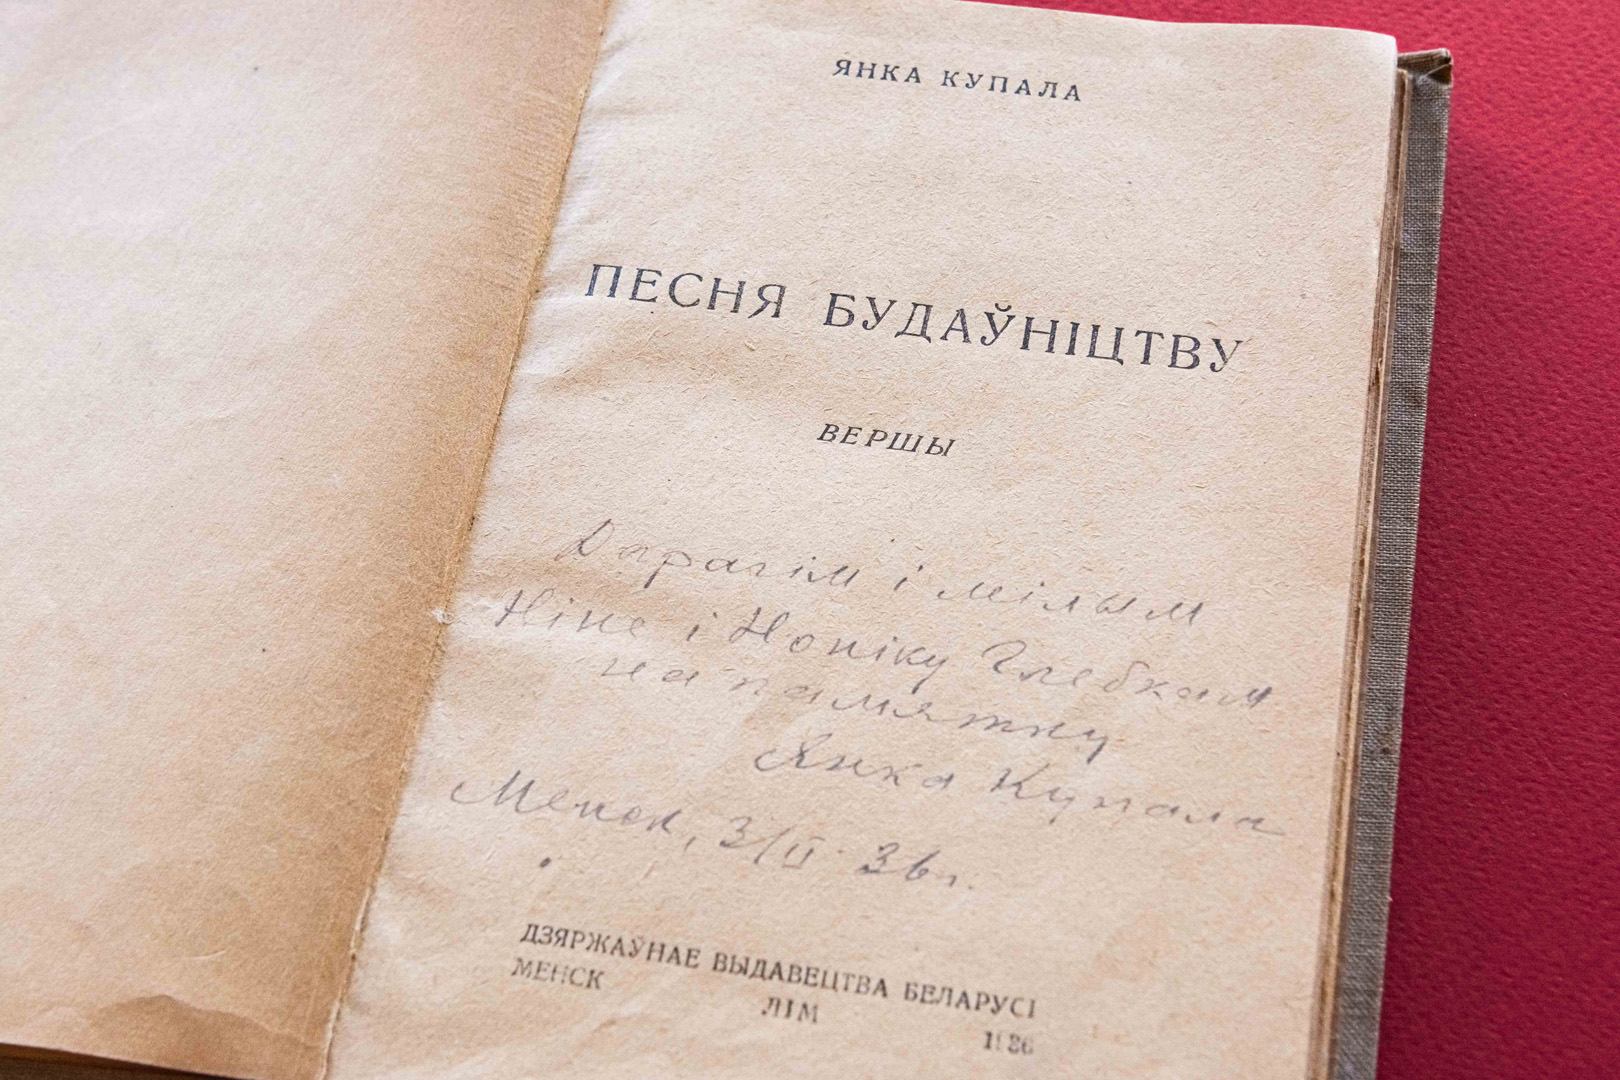 ЯНКА КУПАЛА
ПЕСНЯ БУДАЎНІЦТВУ
ВЕРШЫ
Дарагім і мілым
Ніне і Нопіку Глебкам
на памятку
Янка Купала
Менск, 3/II 36 г.
ДЗЯРЖАЎНАЕ ВЫДАВЕЦТВА БЕЛАРУСІ
МЕНСК
ЛІМ
1936